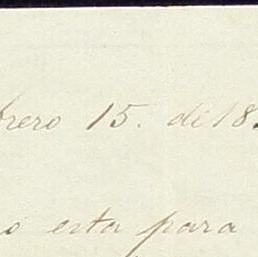 brero 15. de 18
o esta para